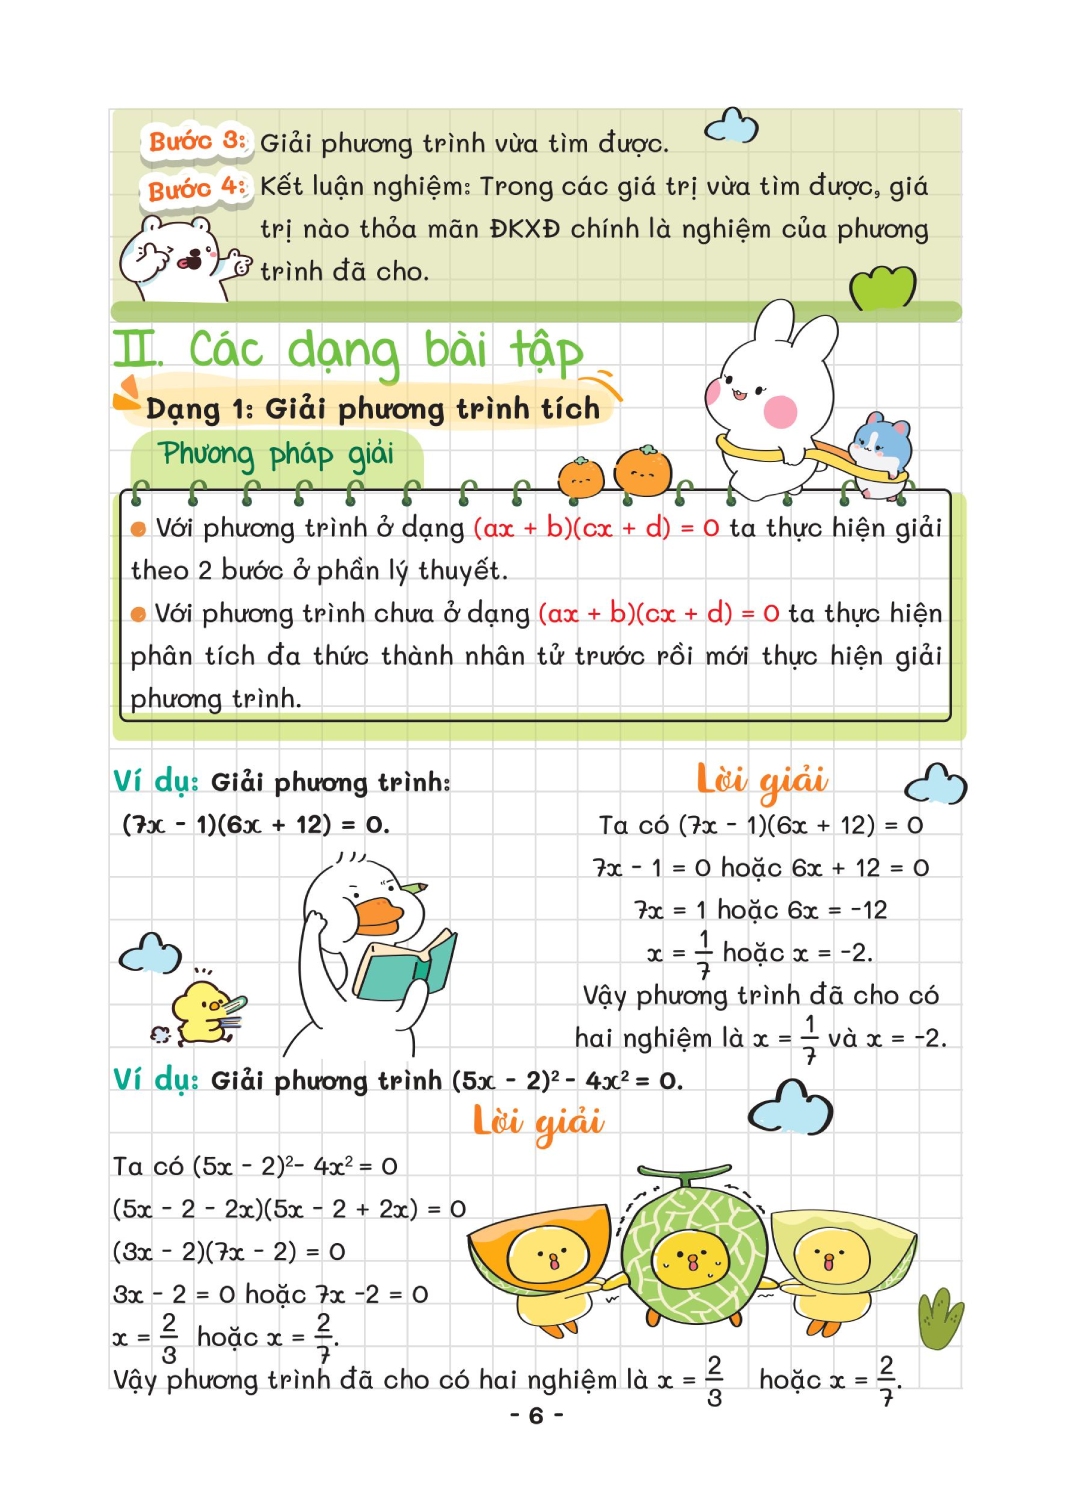 Bước 3: Giải phương trình vừa tìm được.
Bước 4: Kết luận nghiệm: Trong các giá trị vừa tìm được, giá
trị nào thỏa mãn ĐKXĐ chính là nghiệm của phương
trình đã cho.
II. Các dạng bài tập
Dạng 1: Giải phương trình tích
Phương pháp giải
● Với phương trình ở dạng (ax + b)(cx + d) = 0 ta thực hiện giải
theo 2 bước ở phần lý thuyết.
● Với phương trình chưa ở dạng (ax + b)(cx + d) = 0 ta thực hiện
phân tích đa thức thành nhân tử trước rồi mới thực hiện giải
phương trình.
Ví dụ: Giải phương trình:
(7x - 1)(6x + 12) = 0.
Lời giải
Ta có (7x - 1)(6x + 12) = 0
7x - 1 = 0 hoặc 6x + 12 = 0
7x = 1 hoặc 6x = -12
x = 1/7 hoặc x = -2.
Vậy phương trình đã cho có
hai nghiệm là x = 1/7 và x = -2.
Ví dụ: Giải phương trình (5x - 2)² - 4x² = 0.
Lời giải
Ta có (5x - 2)²- 4x² = 0
(5x - 2 - 2x)(5x - 2 + 2x) = 0
(3x - 2)(7x - 2) = 0
3x - 2 = 0 hoặc 7x -2 = 0
x = 2/3 hoặc x = 2/7.
Vậy phương trình đã cho có hai nghiệm là x = 2/3 hoặc x = 2/7.
- 6 -